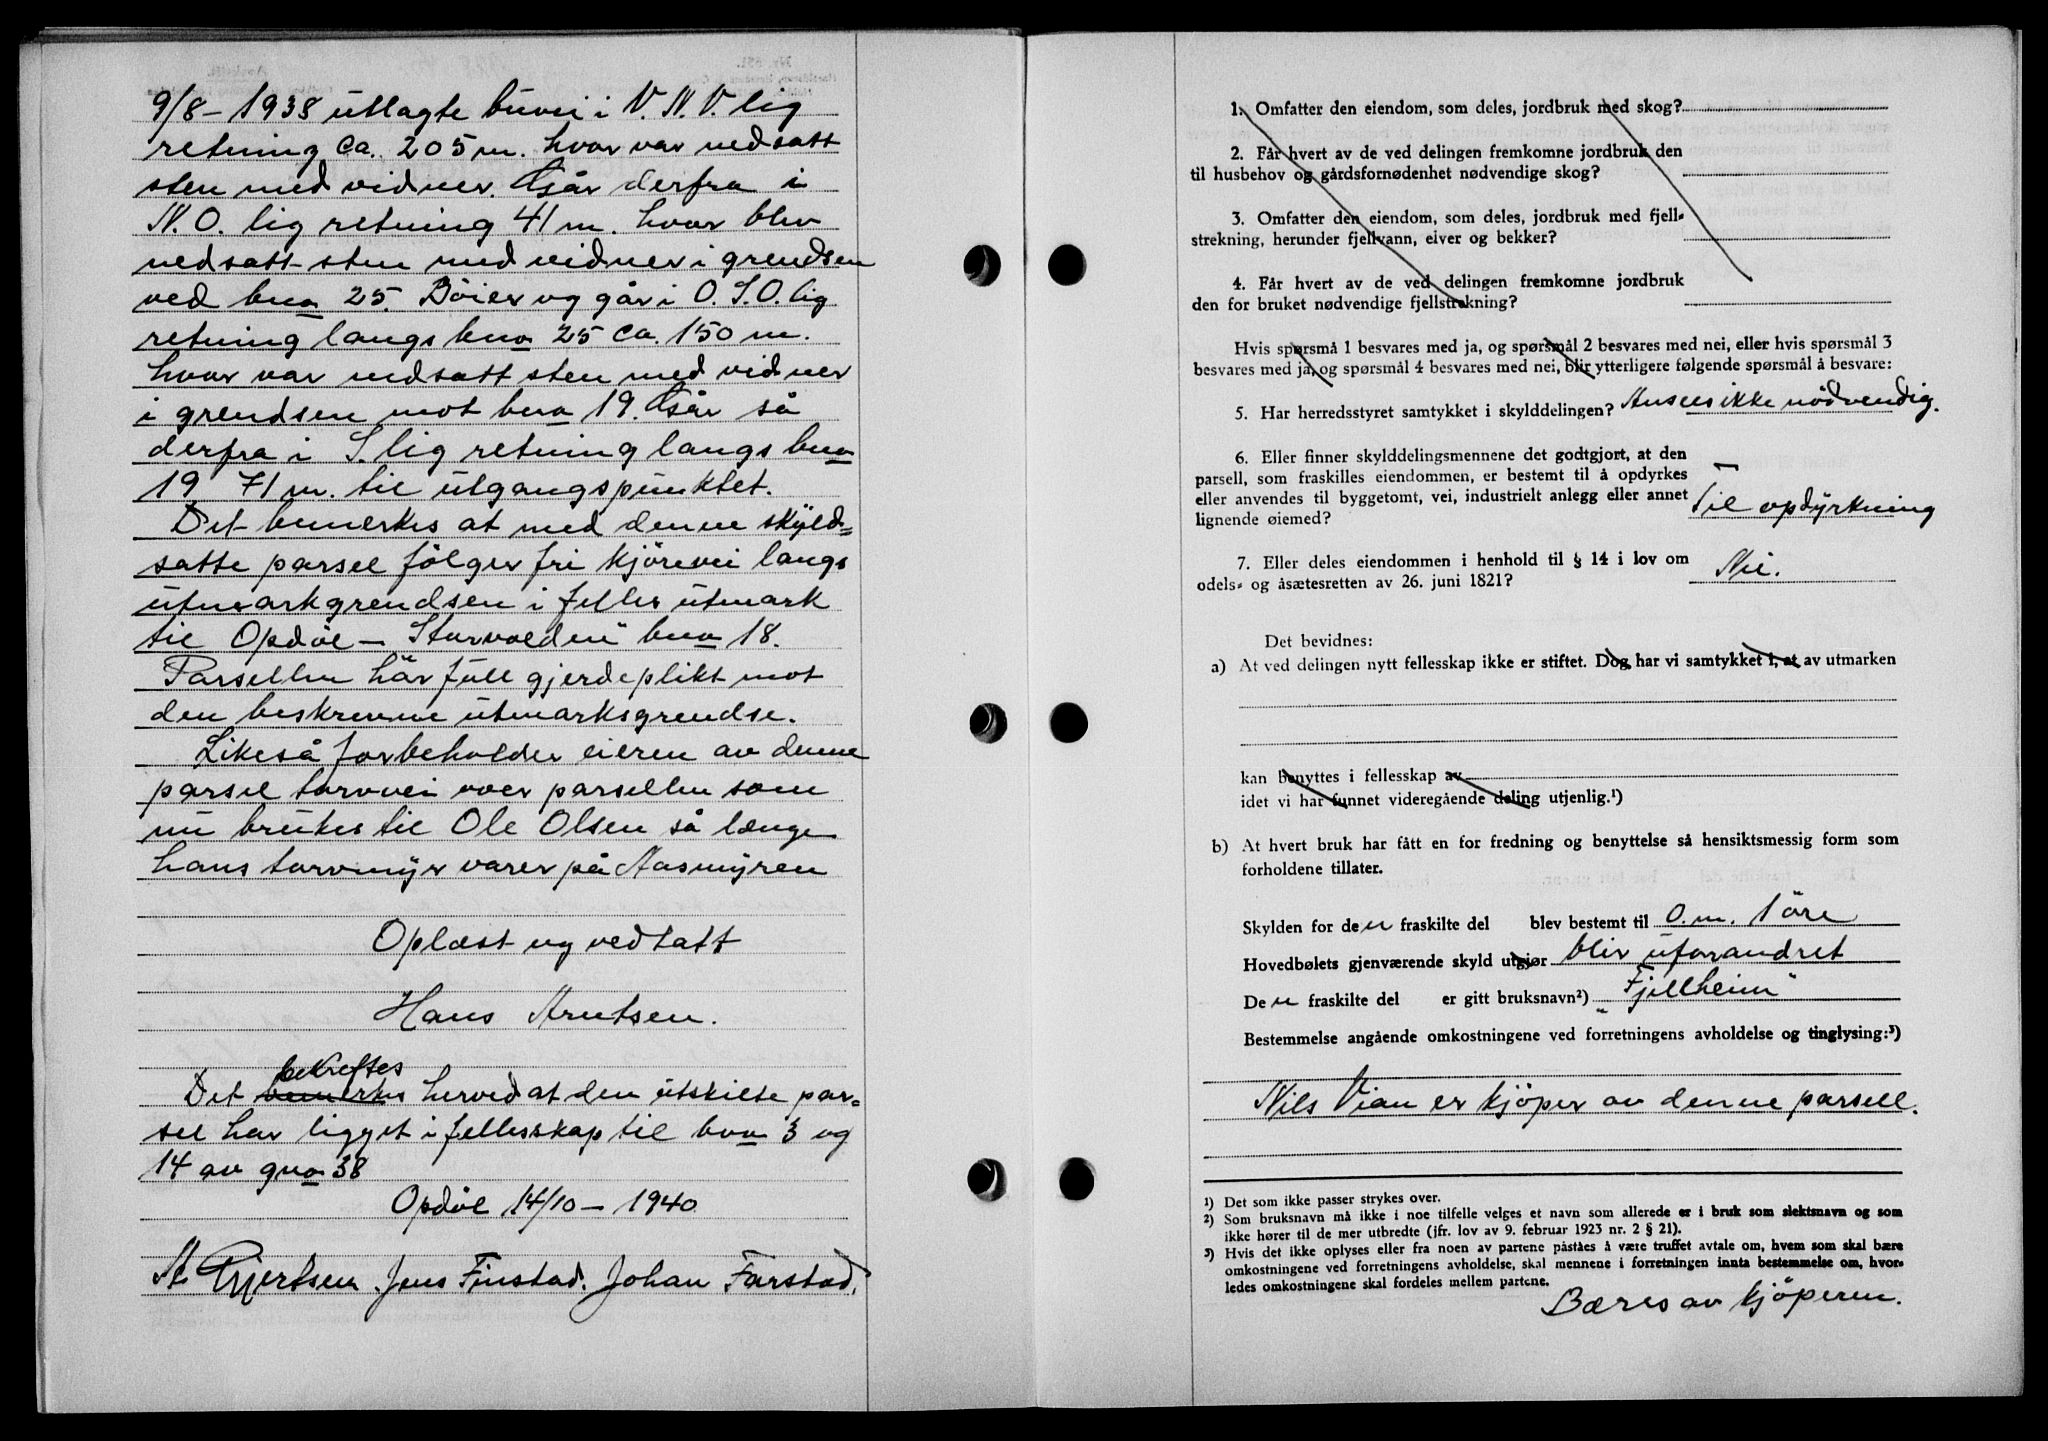 9/8 – 1938 utlagte buvei i V. N. V. lig
retning ca. 205 m. hvor var nedsatt
sten med vidner. Går derfra i
N. O. lig retning 41 m. hvor blev
nedsatt sten med vidner i grendsen
ved bno 25. Bøier og går i O. S. O. lig
retning langs bno 25 ca. 150 m.
hvor var nedsatt sten med vidner
i grendsen mot bno 19. Går så
derfra i S. lig retning langs bno
19 71 m. til utgangspunktet.
Det bemerkes at med denne skyld=
satte parsel følger fri kjørevei langs
utmarkgrendsen i felles utmark
til Opdøl – Storvolden" bno 18.
Parsellen har full gjerdeplikt mot
den beskrevne utmarksgrendse.
Likeså forbeholder eieren av denne
parsel torvvei over parsellen som
nu brukes til Ole Olsen så længe
hans torvmyr varer på Aasmyren
Oplæst og vedtatt
Hans Arntsen.
bekreftes
Det bemerkes herved at den utskilte par=
sel har ligget i fellesskap til bno 3 og
14 av gno 38
Opdøl 14/10 – 1940
Gjertsen Jens Finstad. Johan Farstad.
1. Omfatter den eiendom, som deles, jordbruk med skog?
2. Får hvert av de ved delingen fremkomne jordbruk den
til husbehov og gårdsfornødenhet nødvendige skog?
3. Omfatter den eiendom, som deles, jordbruk med fjell-
strekning, herunder fjellvann, elver og bekker?
4. Får hvert av de ved delingen fremkomne jordbruk
den for bruket nødvendige fjellstrekning?
Hvis spørsmå 1 besvares med ja, og spørsmål 2 besvares med nei, eller hvis spørsmål 3
besvares med ja, og spørsmål 4 besvares med nei, blir ytterligere følgende spørsmål å besvare:
5. Har herredsstyret samtykket i skylddelingen? Ansees ikke nødvendig.
6. Eller finner skylddelingsmennene det godtgjort, at den
parsell, som fraskilles eiendommen, er bestemt til å opdyrkes
eller anvendes til byggetomt, vei, industrielt anlegg eller annet
lignende øiemed? Til opdyrkning
7. Eller deles eiendommen i henhold til § 14 i lov om
odels- og åsætesretten av 26. juni 1821? Nei.
Det bevidnes:
a) At ved delingen nytt fellesskap ikke er stiftet. Dog har vi samtykket i, at av utmarken
kan benyttes i fellesskap av
idet vi har funnet videregående deling utjenlig.¹)
b) At hvert bruk har fått en for fredning og benyttelse så hensiktsmessig form som
forholdene tillater.
Skylden for den fraskilte del blev bestemt til 0. m. 1 øre
Hovedbølets gjenværende skyld utgjør blir uforandret
Den fraskilte del er gitt bruksnavn²) "Fjellheim"
Bestemmelse angående omkostningene ved forretningens avholdelse og tinglysing:³)
Nils Vian er kjøper av denne parsell.
¹) Det som ikke passer strykes over.
²) Som bruksnavn må ikke i noe tilfelle velges et navn som allerede er i bruk som slektsnavn og som
ikke hører til de mer utbredte (jfr. lov av 9. februar 1923 nr. 2 § 21).
³) Hvis det ikke oplyses eller fra noen av partene påståes å være truffet avtale om, hvem som skal bære
omkostningene ved forretningens avholdelse, skal mennene i forretningen innta bestemmelse om, hvor-
ledes omkostningene skal fordeles mellem partene.
Bæres av kjøperen.